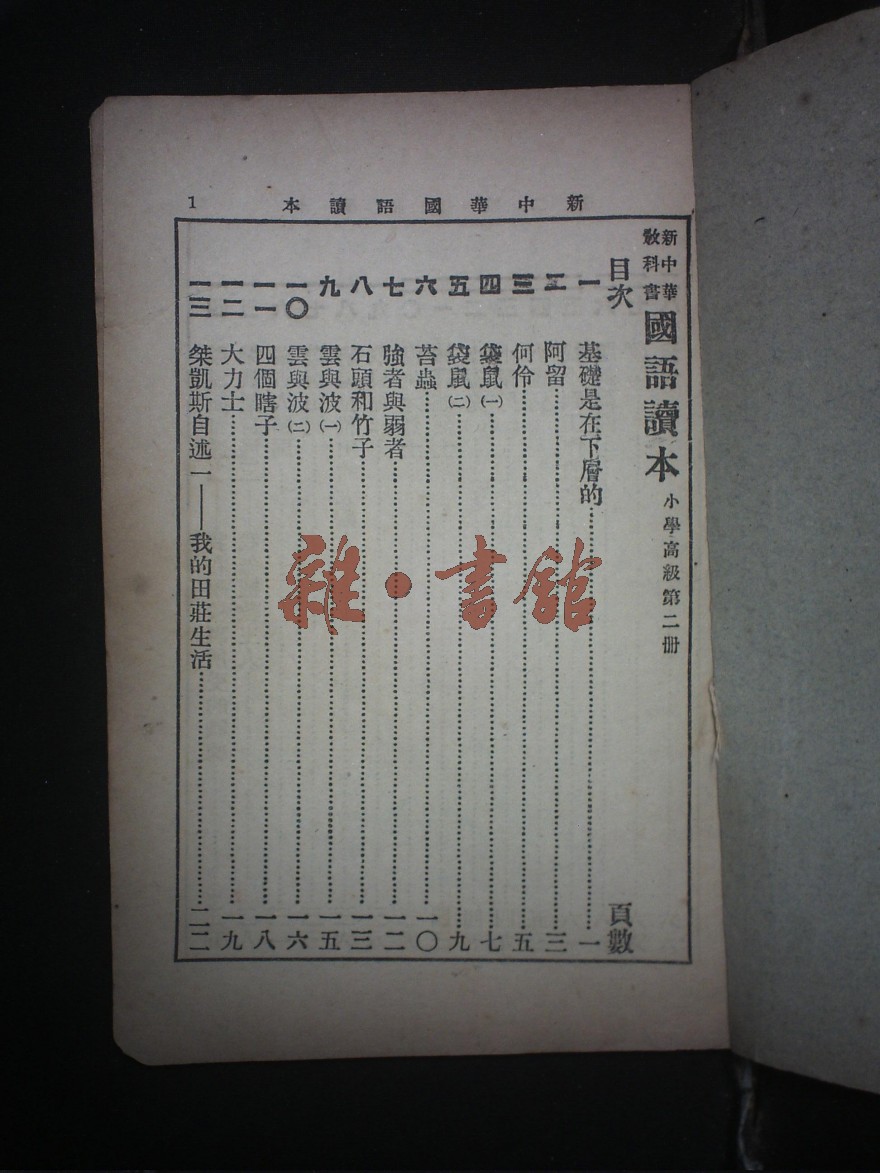 新中華國語讀本 1
新中華教科書 國語讀本 小學高級第二冊
目次 頁數
一 基礎是在下層的 一
二 阿留 三
三 何伶 五
四 袋鼠(一) 七
五 袋鼠(二) 九
六 苔蟲 一〇
七 強者與弱者 一二
八 石頭和竹子 一三
九 雲與波(一) 一五
一〇 雲與波(二) 一六
一一 四個瞎子 一八
一二 大力士 一九
一三 桀凱斯自述一——我的田莊生活 二二
雜·書館